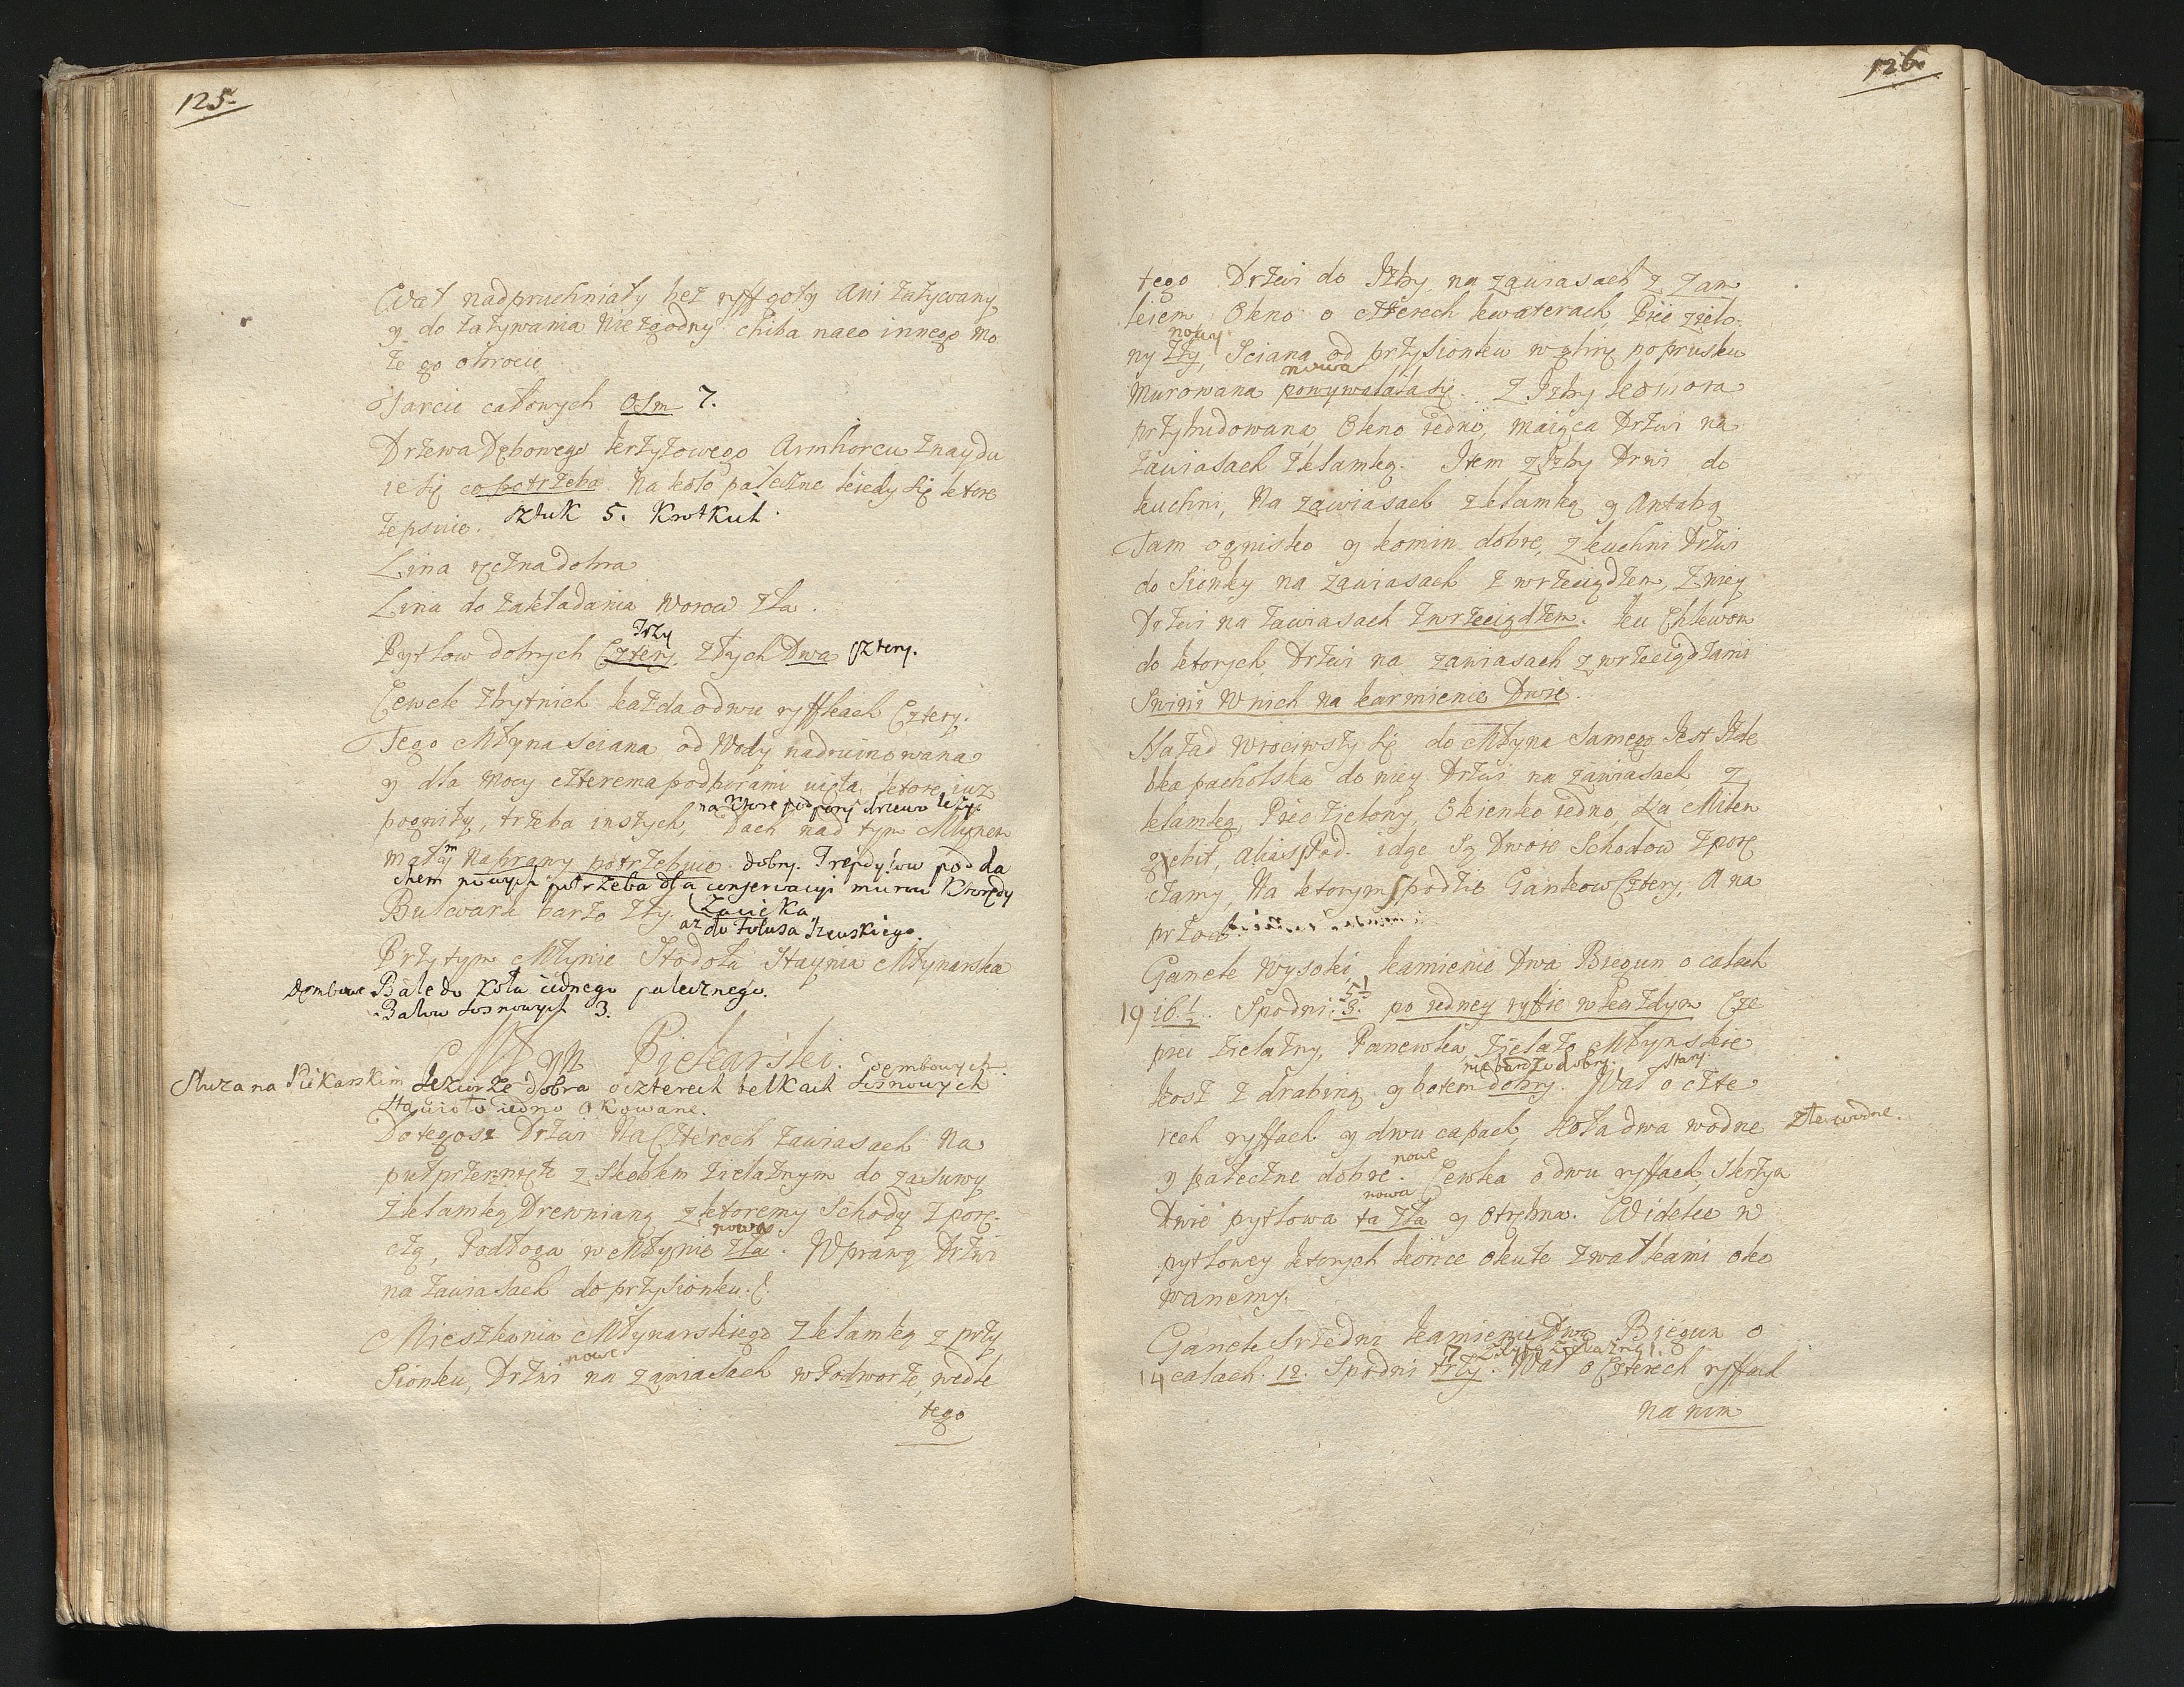 125.
Wał nadpruchniały bez ryff goły Ani zażywany
y do zażywania Niezgodny chiba naco innego Mo
że go obrocic
Tarcic calowych Osm 7.
Drzewa Dębowego krzyżowego Armborcu znaydu
ie się co potrzeba Na koło paleczne kiedy się ktore
zepsuie. sztuk 5. Krotkich.
Lina ręczna dobra
Lina do zakładania Worow zła.
Trzy
Pytlow dobrych Cztery. złych Dwa cztery.
Cewek zbytnich każda o dwu ryffkach Cztery.
Tego Młyna sciana od Wody nadruinowana
y dla Mocy czterema podporami uięta, ktore iuz
na ktore podpory drzewo leży.
pogniły, trzeba inszych, Dach nad tym Młynem
małym Naprawy potrzebuie. dobry. Trepdylow pod da
chem nowych potrzeba dla conserwacyi murow Krwędy
Bulwark barzo zły. Zacieka
az do Folusa
Przy tym Młynie Stodoła Staynia Młynarska
Dembowe Bale do Koła iednego palecznego.
Balow Sosnowych 3.
Młyn Piekarski.
dembowych
Sluza na Piekarskim dobra o czterech belkach Sosnowych
Stawidło iedno okowane.
Do tegosz Drzwi Na Czterech zawiasach Na
puł przerznięte z Skoblem żielaznym do zasuwy
z klamką Drewnianą z ktoremy Schody z porę-
nowa.
czą, Podłoga w Młynie zła. W prawą Drzwi
na zawiasach do przysionku.
Mieszkania Młynarskiego z klamką z przy
nowe
Sionku, Drzwi na zawiasach w Podworze, wedle
tego
126.
tego Drzwi do Izby na zawiasach z Zam
kiem Okno o czterech kwaterach, Piec zielo-
nowy
ny zły, Sciana od przysionku w glinę po prusku
nowa
Murowana powywalała się. Z Izby komora
przybudowana, Okno iedno, maiąca Drzwi na
zawiasach z klamką. Item z Izby Drzwi do
kuchni, Na zawiasach z klamką y Antabą
Tam ognisko y komin dobre, z kuchni Drzwi
do Sionky na zawiasach z wrzeciądzem, z niey
Drzwi na zawiasach z wrzeciądzem. ku Chlewom
do ktorych Drzwi na zawiasach z wrzeciądzami
Swini W nich Na karmienie Dwie.
Nazad Wrociwszy się do Młyna Samego Jest Izde
bka pacholska do niey Drzwi na zawiasach z
klamką, Piec zielony, Okienko iedno, Na Milen
grebit, alias Pad. idąc Są Dwoie Schodow z porę
czamy, Na ktorym spodzie Gankow Cztery, A na
przod
Ganek Wysoki, kamienie Dwa Biegun o calach
5½
19 16.½. Spodni. 8. po iedney ryffie w każdym Cze
piec żielazny, Panewka, żielazo Młynskie
nie bardzo dobry. stary.
kosz z drabiną y botem dobry. Wał o czte
rech ryffach y dwu capach, Koła dwa wodne złe wodne.
nowe
y paleczne dobre. Cewka o dwu ryffach, Skrzyn
nowa
Dwie pytlowa ta zła y Otrębna. Widelce w
pytlowey ktorych końce okute z wałkami oko
wanemy.
Ganek Sredni kamienie Dwa Biegun o
7
14 calach. 12. Spodni trzy. Wał o Czterech ryffach
na nim